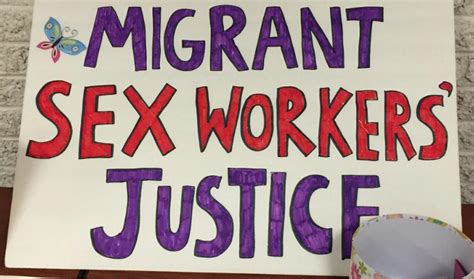 MIGRANT
SEX WORKERS'
JUSTICE